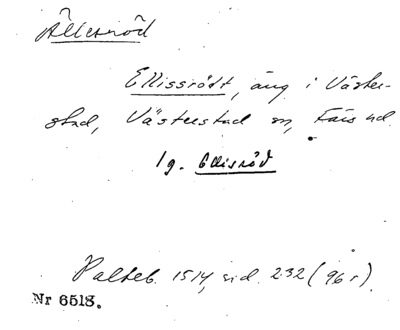 Ällesröd
Ellissrödt, äng i Väster-
stad, Västerstad sn, Färs hd.
1 g. Ellisröd
Palteb. 1514, sid. 232 (96 r).
Nr 6518.